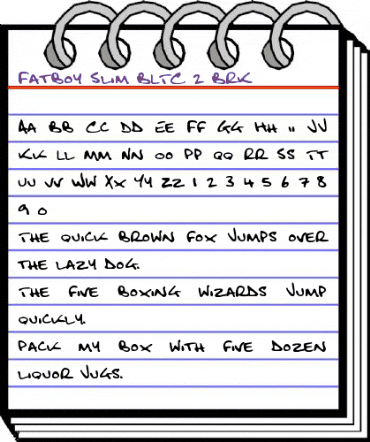 FATBOY SLIM BLTC 2 BRK
AA BB CC DD EE FF GG HH II JJ
KK LL MM NN OO PP QQ RR SS TT
UU VV WW XX YY ZZ 1 2 3 4 5 6 7 8
9 0
THE QUICK BROWN FOX JUMPS OVER
THE LAZY DOG.
THE FIVE BOXING WIZARDS JUMP
QUICKLY.
PACK MY BOX WITH FIVE DOZEN
LIQUOR JUGS.